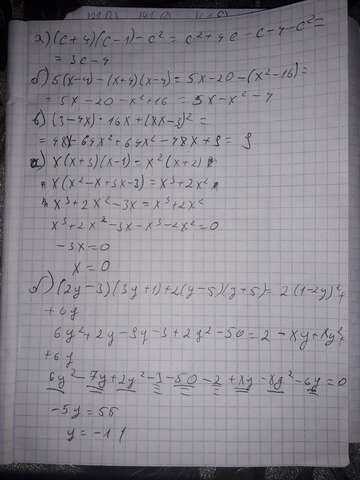 а) (c+4)(c-1)-c²= c²+4c-c-4-c²=
= 3c-4
б) 5(x-4)-(x+4)(x-4)=5x-20-(x²-16)=
= 5x-20-x²+16 = 5x-x²-4
в) (3-4x)·16x+(8x-3)²=
= 48x-64x²+64x²-48x+9= 9
а) x(x+3)(x-1)=x²(x+2)
x(x²-x+3x-3)=x³+2x²
x³+2x²-3x=x³+2x²
x³+2x²-3x-x³-2x²=0
-3x=0
x=0
б) (2y-3)(3y+1)+2(y-5)(y+5)= 2(1-2y)²+
+6y
6y²+2y-9y-3+2y²-50=2-8y+8y²+
+6y
6y²-7y+2y²-3-50-2+8y-8y²-6y=0
-5y=55
y=-11